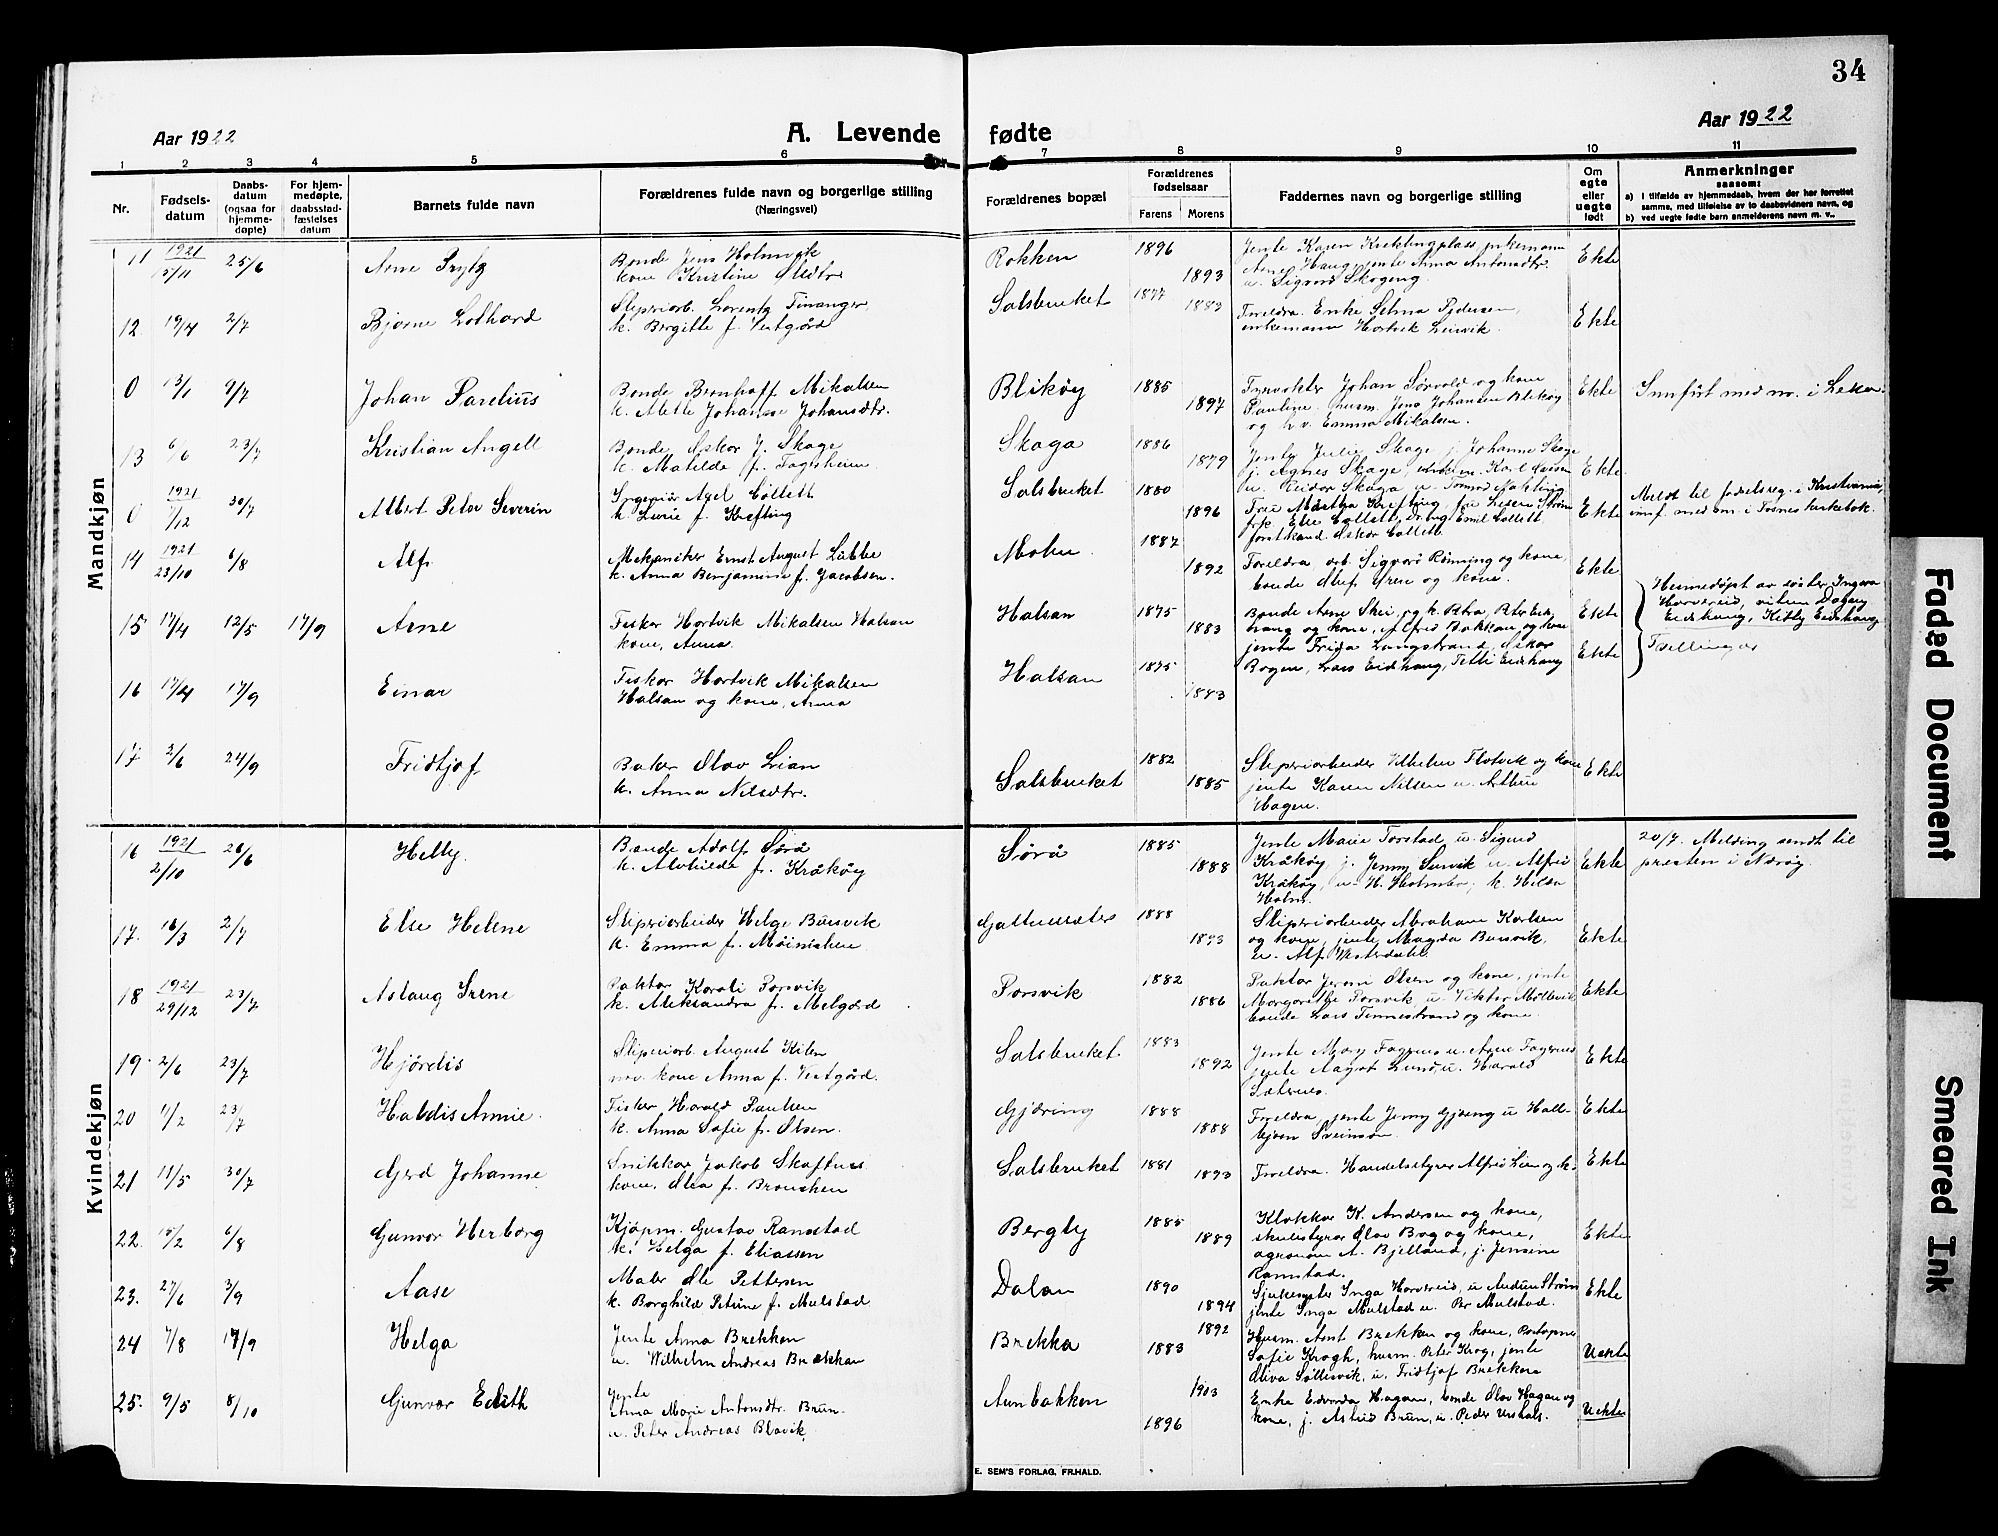 34
Aar 1922
A. Levende
fødte
Aar 1922
1 2 3 4 5 6 7 8 9 10 11
Nr.
Fødsels-
datum
Daabs-
datum
(ogsaa for
hjemme-
døpte)
For hjem-
medøpte,
daabsstad-
fæstelses
datum
Barnets fulde navn
Forældrenes fulde navn og borgerlige stilling
(Næringsvei)
Forældrenes bopæl
Forældrenes
fødselsaar
Farens Morens
Faddernes navn og borgerlige stilling
Om
egte
eller
uegte
født
Anmerkninger
saasom:
a) i tilfælde av hjemmedaab, hvem der har forrettet
samme, med tilføielse av to daabsvidners navn, og
b) ved uegte fødte barn anmelderens navn m. v..
Mandkjøn
11 1921 15/11 25/6 Arne Bonde Jens Holmvik
kone Kristine Olsdtr. Rokken 1896 1893 Jente Karen Kreklingplass, unkemann
Arne Haug, jente Anna Antonsdtr.
u. Sigurd Skogeng. Ekte
12. 19/4 2/7 Bjarne Lothard Sliperiarb. Lorentz Finanger
k. Bergitte f. Vestgård Salsbruket 1877 1883 Foreldra. Enke Selma Pedersen,
enkemann Hartvik Leirvik Ekte
0 13/1 9/7 Johan Parelius Bonde Bernhoff Mikalsen
k. Mette Johanna Johansdtr. Blikøy 1885 1897 Forvalter Johan Sørvold og kone
Pauline. husm. Jens Johansen Blikøy
og h. v. Emma Mikalsen. Ekte Innført med nr. i Leka.
13 6/6 23/7 Kristian Angell Bonde Oskar J. Skage
k. Matilde f. Fagerheim Skaga 1886 1879 Jente Julie Skage j. Johanna Skage
j. Agnes Skage, Karl
u. Reidar Skaga u. Ekte
0 1921 7/12 30/7 Albert Peter Severin Ingeniør Axel Collett
k. Lucie f. Krefting Salsbruket 1880 1896 Frue Martha Krefting, fru Strøm
frk. Elie Collett, Emil Collett
forstkand. Oskar Collett Ekte Meldt til fødselsreg. i Kristiania,
innf. med nr. i Fosnes kirkebok.
14 1921 23/10 6/8 Alf Mekaniker Ernst August Lübbe
k. Anna Benjamine f. Jacobsen. Mohn 1887 1892 Foreldra arb. Sigvard Rønning og kone,
bonde Oluf og kone. Ekte
15 17/4 12/5 17/9 Arne Fisker Hartvik Mikalsen Halsan
kone, Anna. Halsan 1875 1883 Bonde Arne Skei, og k. Petra,
og kone, Alfred Bakkan og kone
jente Frida Langstrand, Oskar
Bogen, Lars Eidshaug, Eidshaug Ekte Hemedøpt av søster Ingera
Hardereid, vitne Dagny
Eidshaug, Kitty Eidshaug
Tvillingar
16 17/4 17/9 Einar Fisker Hartvik Mikalsen
Halsan og kone, Anna Halsan 1875 1883 Ekte
17 2/6 24/9 Fridtjof Baker Olav Lian
k. Anna Nilsdtr. Salsbruket 1882 1885 Sliperiarbeider Vilhelm Flotvik og kone
jente Karen Nilsen u. Arthur
Hagen. Ekte
Kvindekjøn
16 1921 2/10 26/6 Helly. Bonde Adolf Sørå
k. Alvhilde f. Kråkøy Sørå 1885 1888 Jente Marie Torstad u. Sigurd
Kråkøy j. Jenny Survik u. Alfred
Kråkøy, u. H. Holmbo, k. Hilda
Holm. Ekte 20/7. Melding sendt til
presten i Nærøy.
17. 16/3 2/7 Else Helene Sliperiarbeider Helge Buvvik
k. Emma f. Møinichen 1888 1893 Sliperiarbeider Abraham Karlsen
og kone, jente Magda Buvvik,
u. Alf Westerdahl. Ekte
18 1921 29/12 23/7 Aslaug Irene Paktor Karoli Porsvik
k. Aleksandra f. Melgård Porsvik 1882 1886 Paktor Olsen og kone, jente
Margarethe Porsvik, u. Viktor
bonde Lars Tennestrand og kone. Ekte
19. 2/6 23/7 Hjørdis Sliperiarb. August Kilen
nov. kone Anna f. Vestgård. Salsbruket 1883 1892 Jente Mary Fagernes u. Arne Fagernes
jente Aagot Lund, u. Harald
Sæternes. Ekte
20 11/2 23/7 Haldis Annie. Fisker Harald Paulsen
k. Anna Sofie f. Olsen. Gjæring 1888 1888 Foreldra, jente Jenny Gjæring u. Hall-
bjørn Svenson. Ekte
21 11/5 30/7 Gjerd Johanne Snikkar Jakob Skaftnes
kone, Olea f. Brønshen Salsbruket 1881 1893 Foreldra. Handelsstyrer Alfred Lien og k. Ekte
22. 15/2 6/8 Gunvor Herborg Kjøpm. Gustav Ramstad
k. Helga f. Eliassen Bergly 1885 1889 Klokkar K. Andersen og kone,
skulestyrar Olav Bog og kone,
agronom A. Bjelland, j. Jensine
Ramstad. Ekte
23. 27/6 3/9 Aase Maler Ole Pettersen
k. Borghild Petrine f. Mulstad Dalan 1890 1894 Sjukesyster Inga Hardereid, u. Audun Strøm
jente Inga Mulstad u. Per Mulstad. Ekte
24 7/8 17/9 Helga Jente Anna Brekken
u. Wilhelm Andreas Brekkan Brekka 1883 1892 Husm. Amt Brekken og kone,
Sofie Krogh, husm. Peter Krog, jente
Oliva Sollisvik, u. Fridtjof Brekken Uekte
25. 9/5 8/10 Gunvor Edith Jente
Anna Marie Antonsdtr. Brun
u. Peter Andreas Blavik. Aunbakken 1896 1903 Enke Edvarda Hagan, bonde Olav Hagan og
kone, j. Astrid Brun, u. Peder Uekte
E. SEM'S FORLAG, FR.HALD.
Faded Document
Smeared Ink